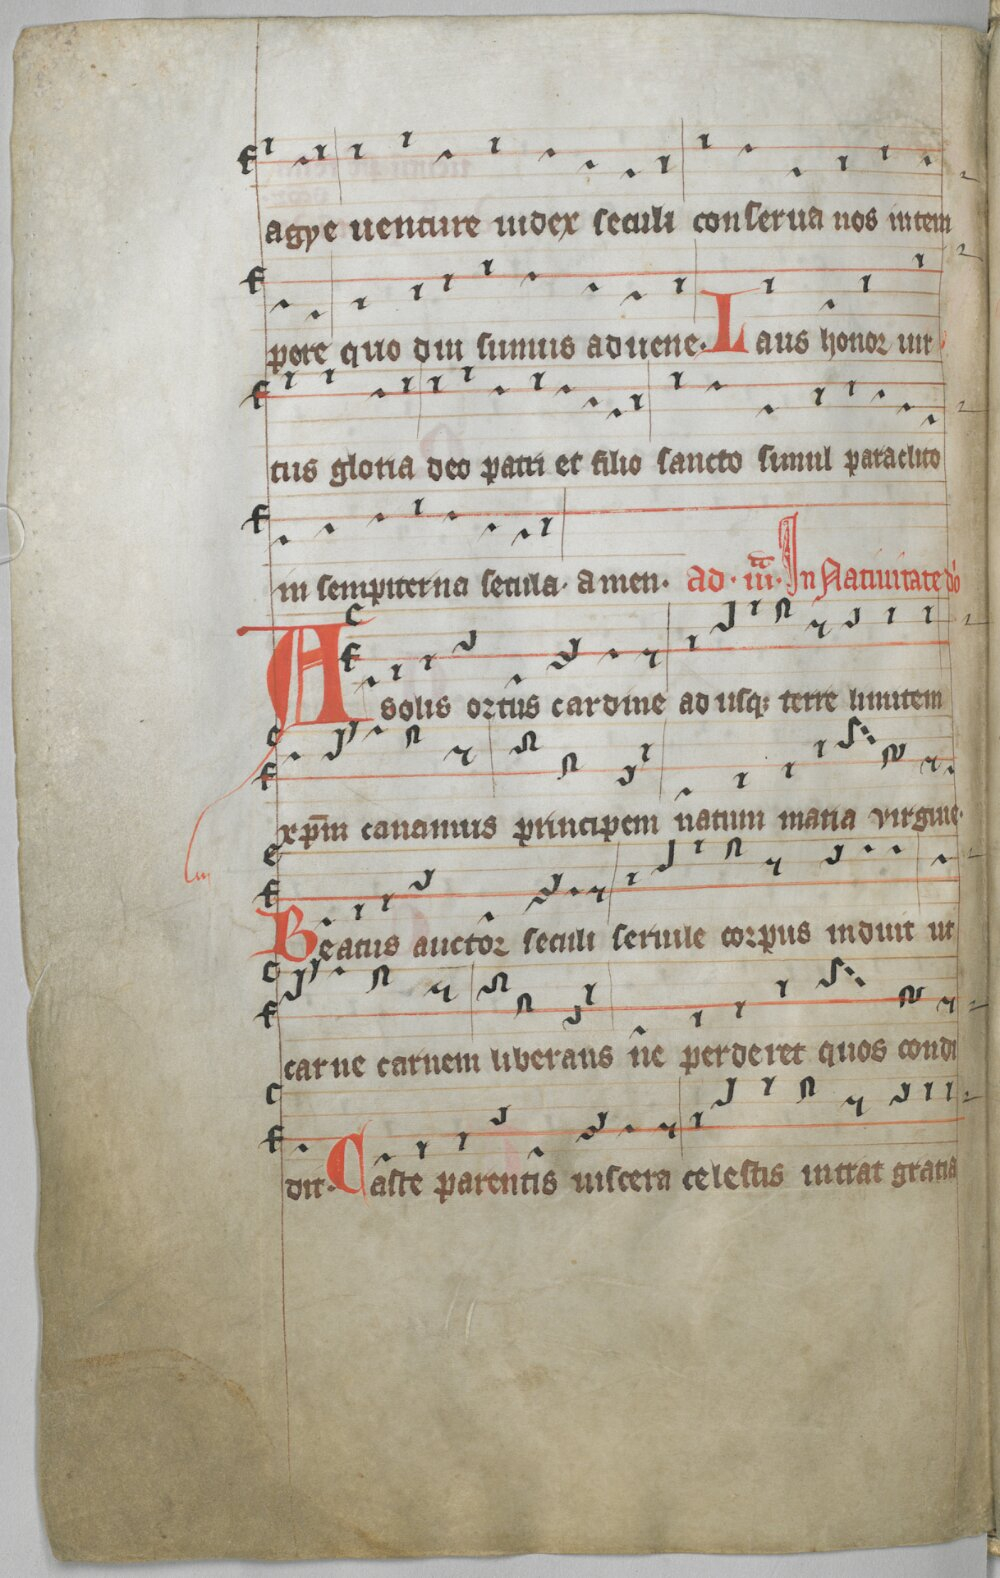 agye uenture iudex seculi conserua nos intem
pore quo diu sumus aduene. Laus honor uir
tus gloria deo patri et filio sancto simul paraclito
in sempiterna secula. amen. ad. iii. In Natiuitate do
A solis ortus cardine ad usq; terre limitem
xp̄m canamus principem natum maria virgine.
Beatus auctor seculi seruile corpus induit ut
carne carnem liberans ne perderet quos condi
dit. Caste parentis uiscera celestis intrat gratia